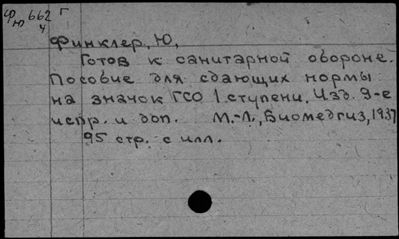 Ф 662 Г
Ю 4
Финклер, Ю,
Готов к санитарной обороне.
Пособие для сдающих нормы
на значок ГСО 1 ступени. Изд. 9-е
испр. и доп. М.-Л., Биомедгиз, 1937
95 стр. с илл.